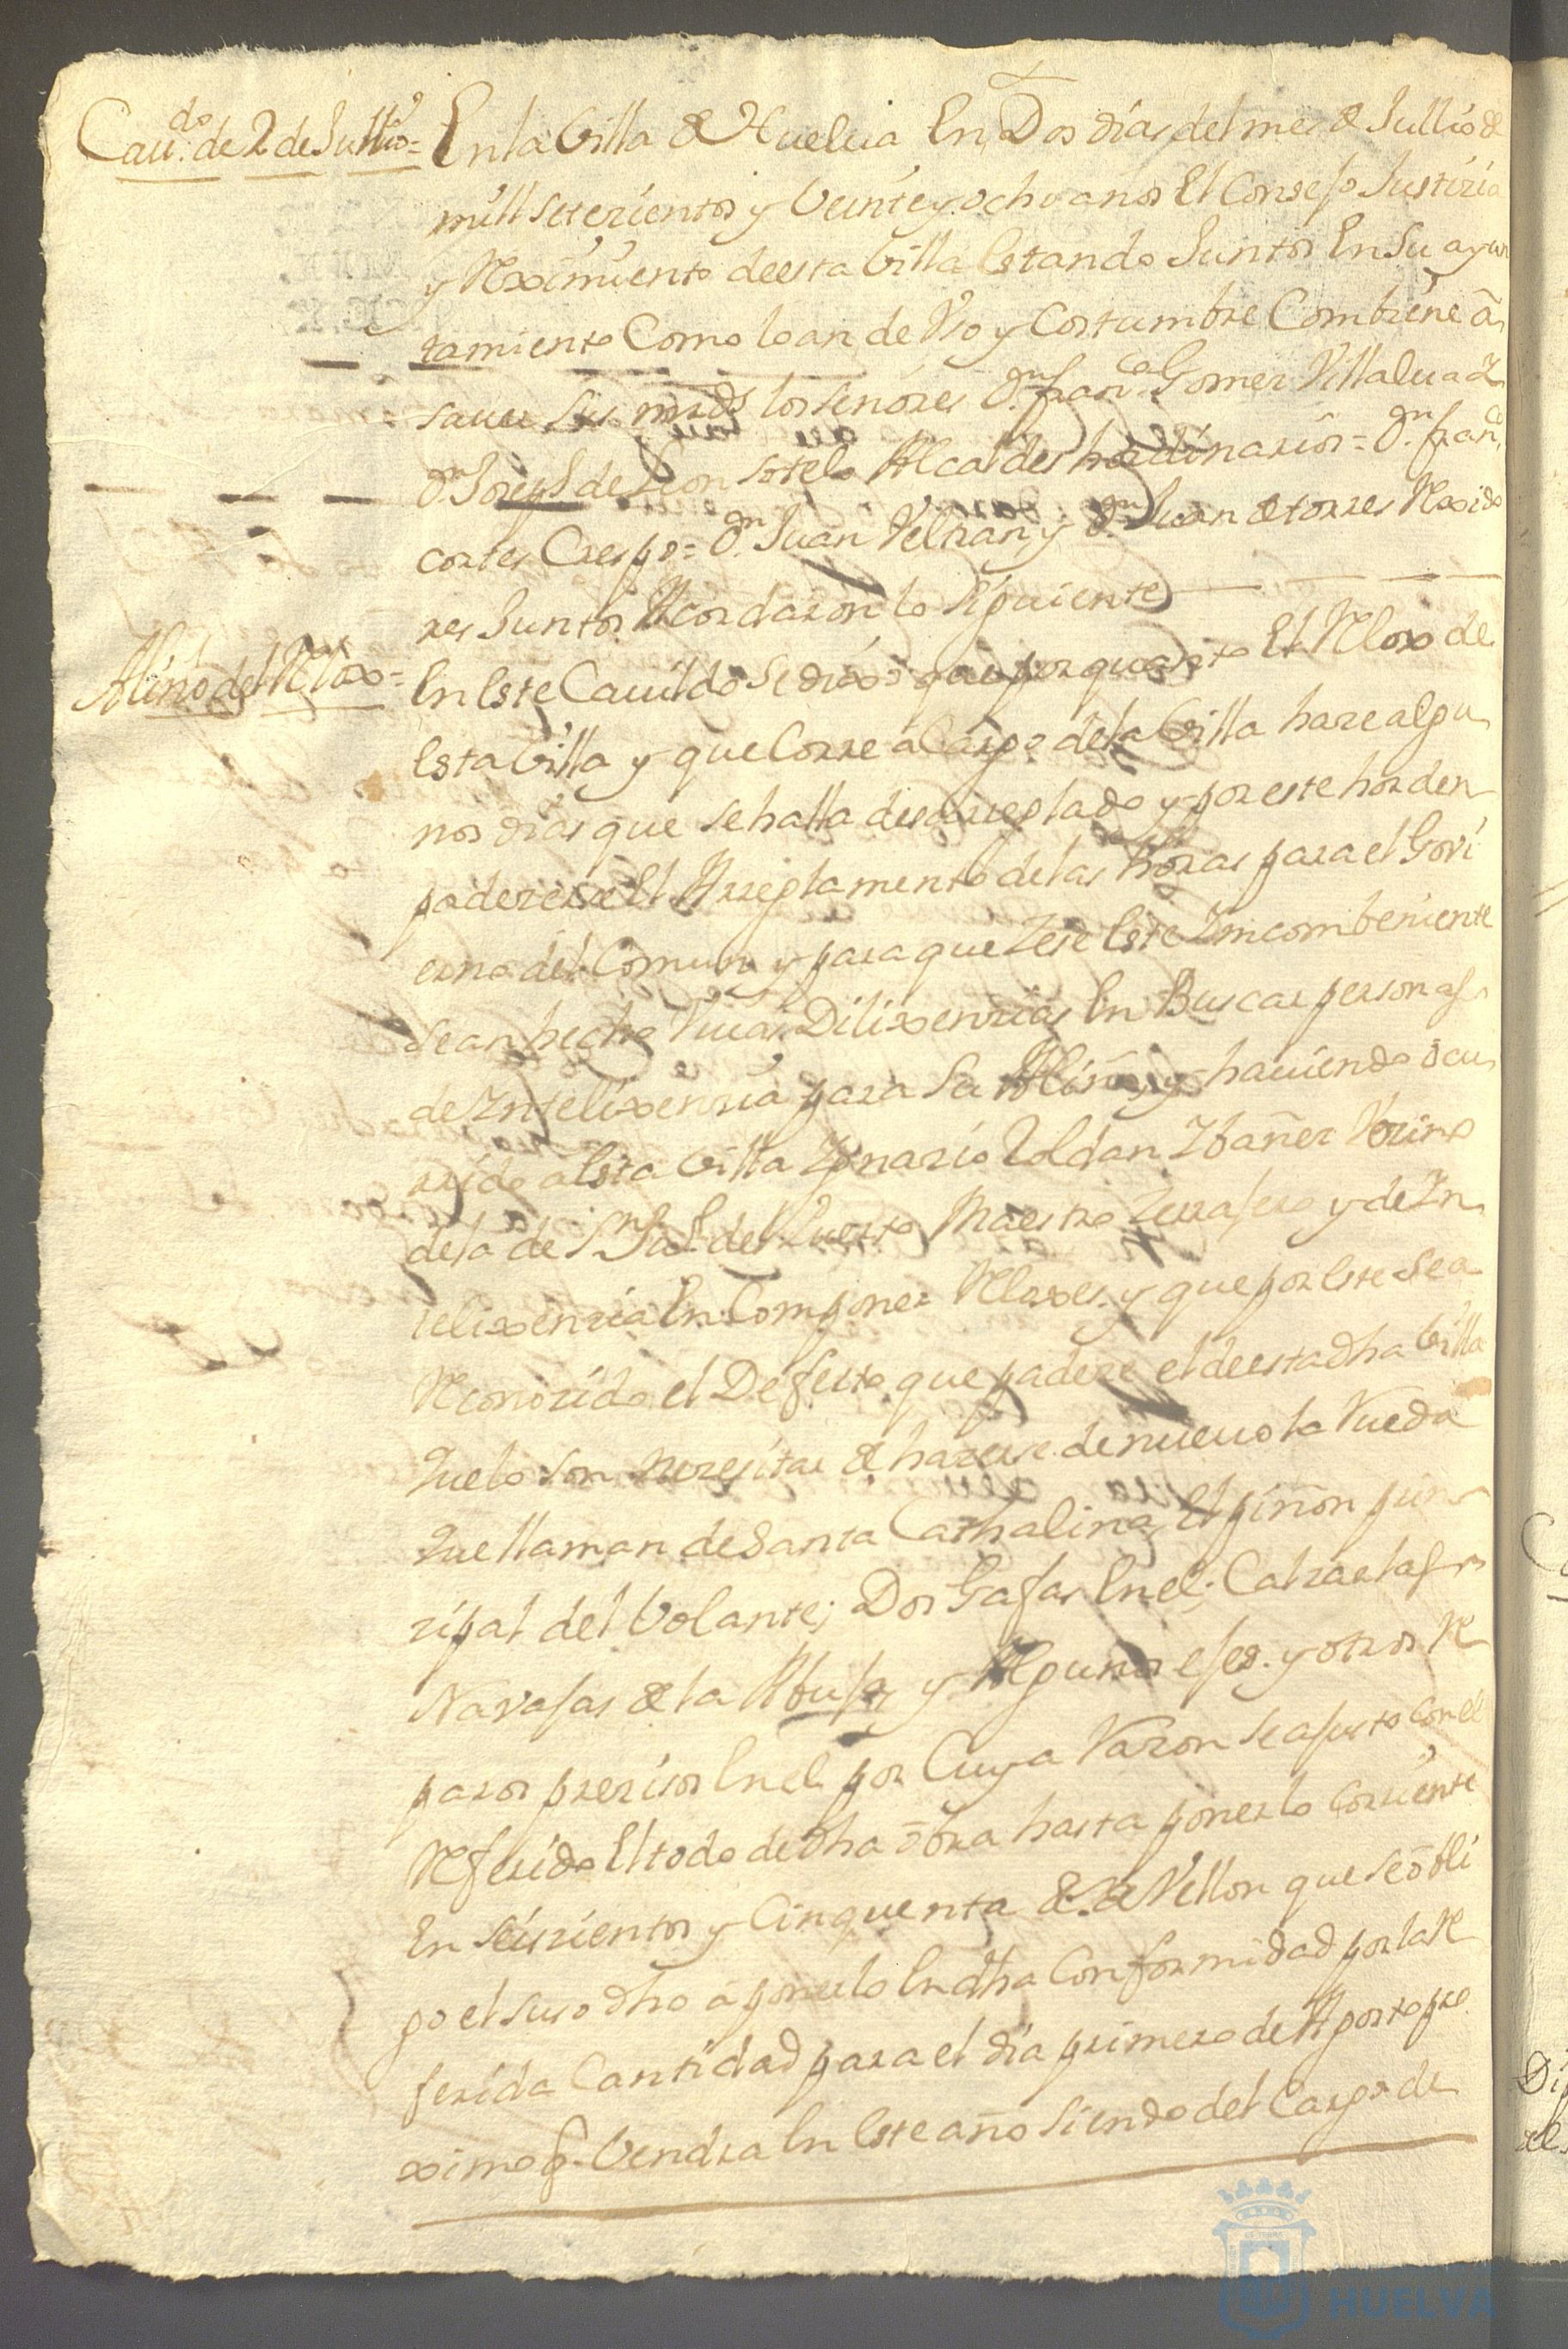 Cau.do de 2 de Jullio =
En la Villa de Huelua En Dos dias del mes de Jullio de
mill setezientos y Veinte y ocho años El Consejo Justizia
y Reximiento de esta Villa Estando Juntos En Su ayun
tamiento Como lo an de Vso y Costumbre Combiene â
sauer sus mrds los señores Dn. franco Gomez Villalua =
Dn Joseph de Leon sotelo Alcaldes hordinarios = Dn. franco
cortes Crespo = Dn. Juan Velnan y Dn. Juan de torres Rexido
res Juntos Acordaron lo siguiente
Aliño del Relox =
En Este Cauildo se dixo que por quanto El Relox de
Esta Villa y que Corre a Cargo de la Villa haze algu
nos dias que se halla desarreglado y por este horden
padeze El Arreglamento de las horas para el Govi
erno del Comun y para que Zese Este Yncombeniente
se an hecho Viuas Dilixenzias En Buscar personas
de Yntelixenzia para Su Aliño, y hauiendo ocu
rrido a Esta Villa Ygnazio Roldan Ybañez Vezino
de la de Sn Juo. del Puerto Maestro Zerrajero y de Yn
telixenzia En Componer Reloxes y que por Este se a
Reconozido el Defecto que padeze el de esta dha Villa
que lo son nezesitar de hazerse de nueuo la Rueda
que llaman de Santa Cathalina, El piñon prin
zipal del Volante; Dos Gafas En el; Calzar las
Navajas de la Abuja y Algunos ejes. y otros Re
paros prezisos En el por Cuya Razon se ajusto con el
Referido El todo de dha ôbra hasta ponerlo Corriente
En seiszientos y Cinquenta Rs. de Vellon que se ôbli
go el suso dho â ponerlo En dha Conformidad por la Re
ferida Cantidad para el dia primero de Agosto pro
ximo q. Vendra En Este año siendo del Cargo de
HUELVA